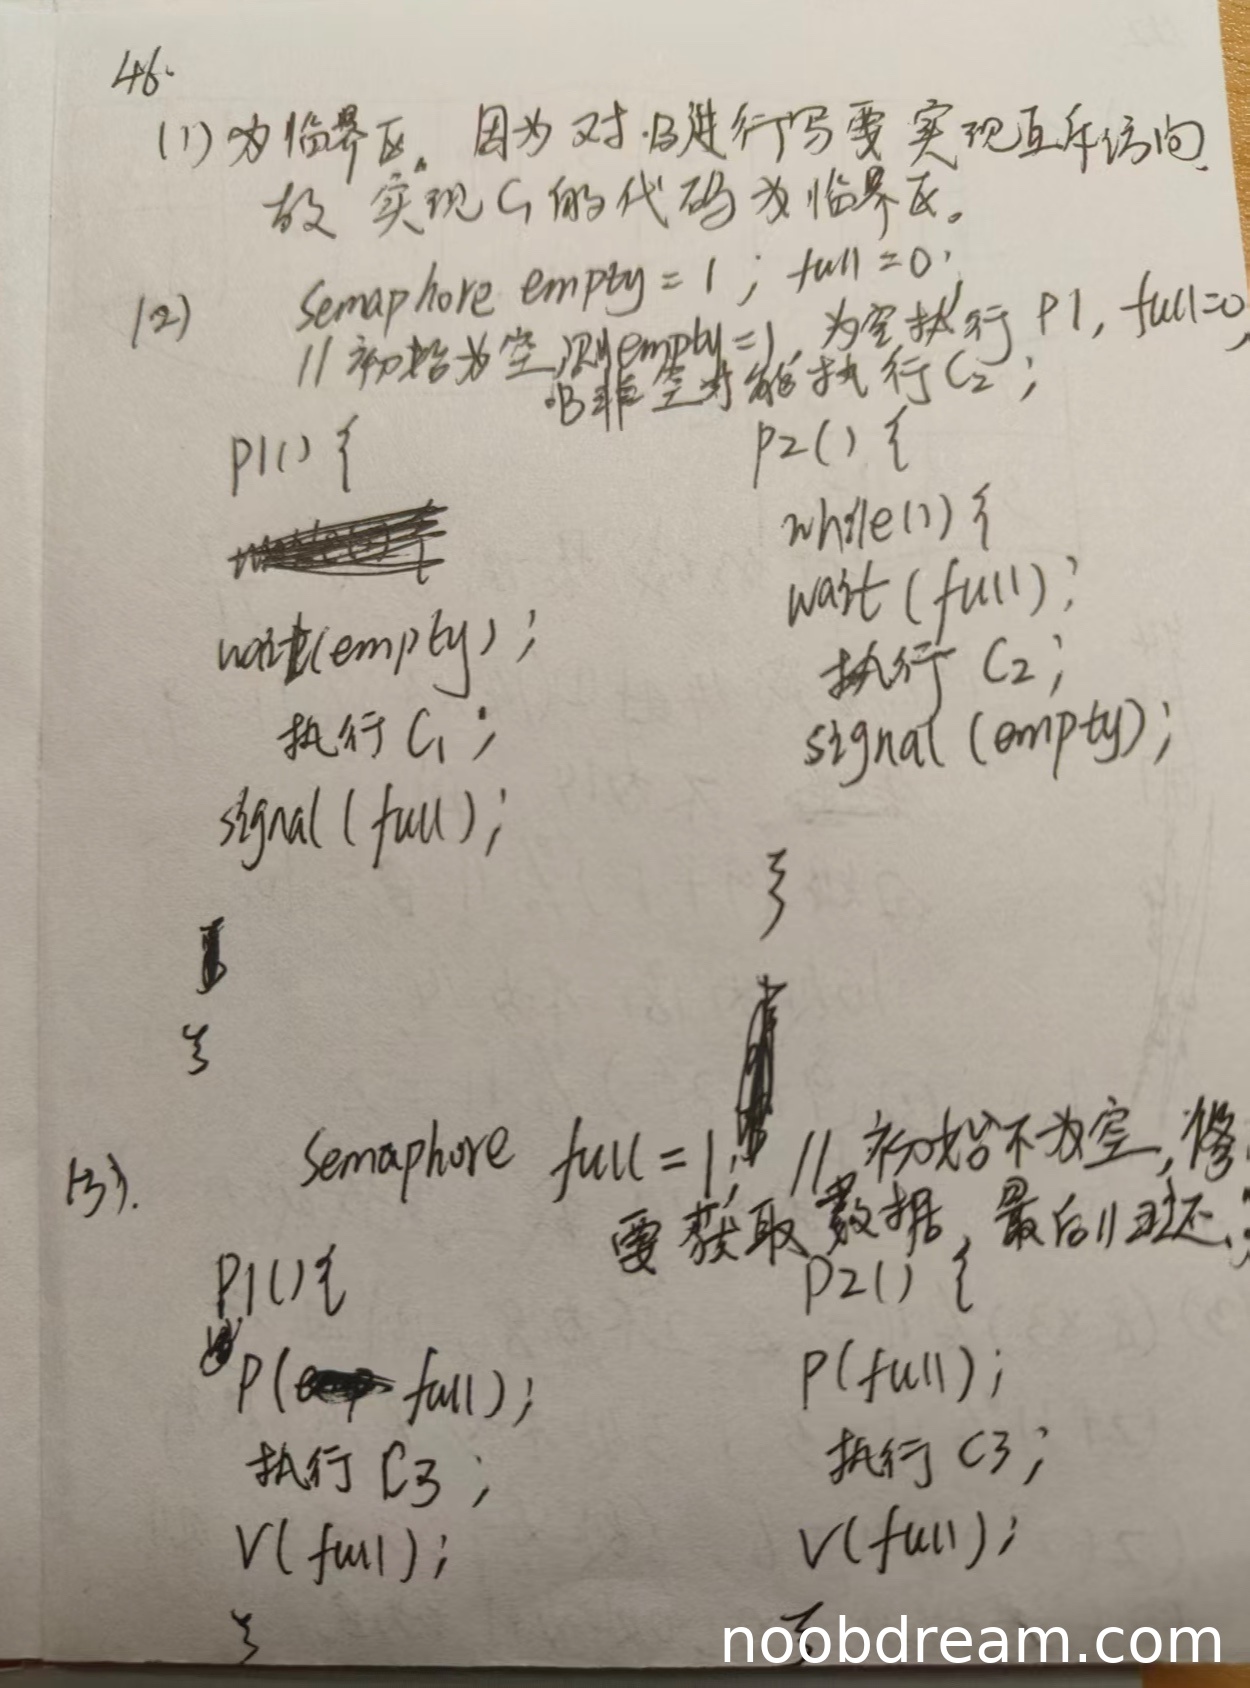 46.
(1) 为临界区。因为对B进行写要实现互斥访问
故实现C1的代码为临界区。
(2) Semaphore empty = 1; full = 0;
// 初始为空,则empty=1,为空执行P1, full=0,
B非空才能执行C2;
P1() {
wait(empty);
执行C1;
signal(full);
}
P2() {
while(1) {
wait(full);
执行 C2;
signal(empty);
}
(3). Semaphore full = 1; // 初始不为空,修
要获取数据,最后归还;
P1() {
P( full);
执行 C3;
V(full);
}
P2() {
P(full);
执行 C3;
V(full);
}
noobdream.com